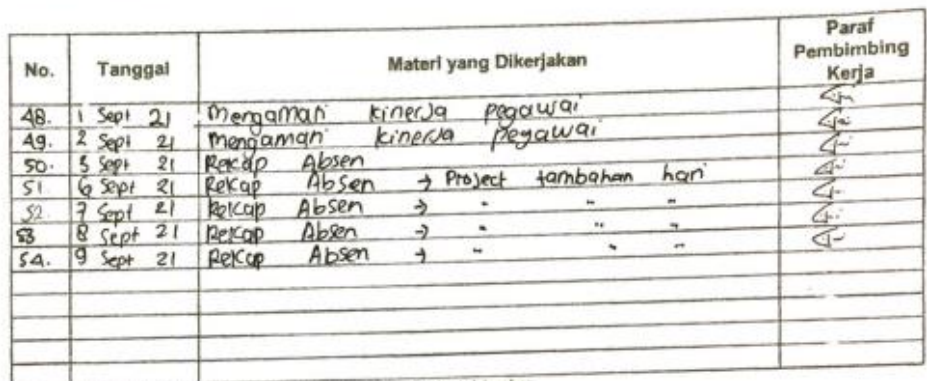 No. Tanggal Materi yang Dikerjakan Paraf Pembimbing Kerja
48. 1 Sept 21 Mengamati kinerja pegawai
49. 2 Sept 21 Mengamati kinerja pegawai
50. 3 Sept 21 Rekap Absen
51 6 Sept 21 Rekap Absen → Project tambahan hari
52. 7 Sept 21 Rekap Absen → " " "
53 8 Sept 21 Rekap Absen → " " "
54. 9 Sept 21 Rekap Absen → " " "